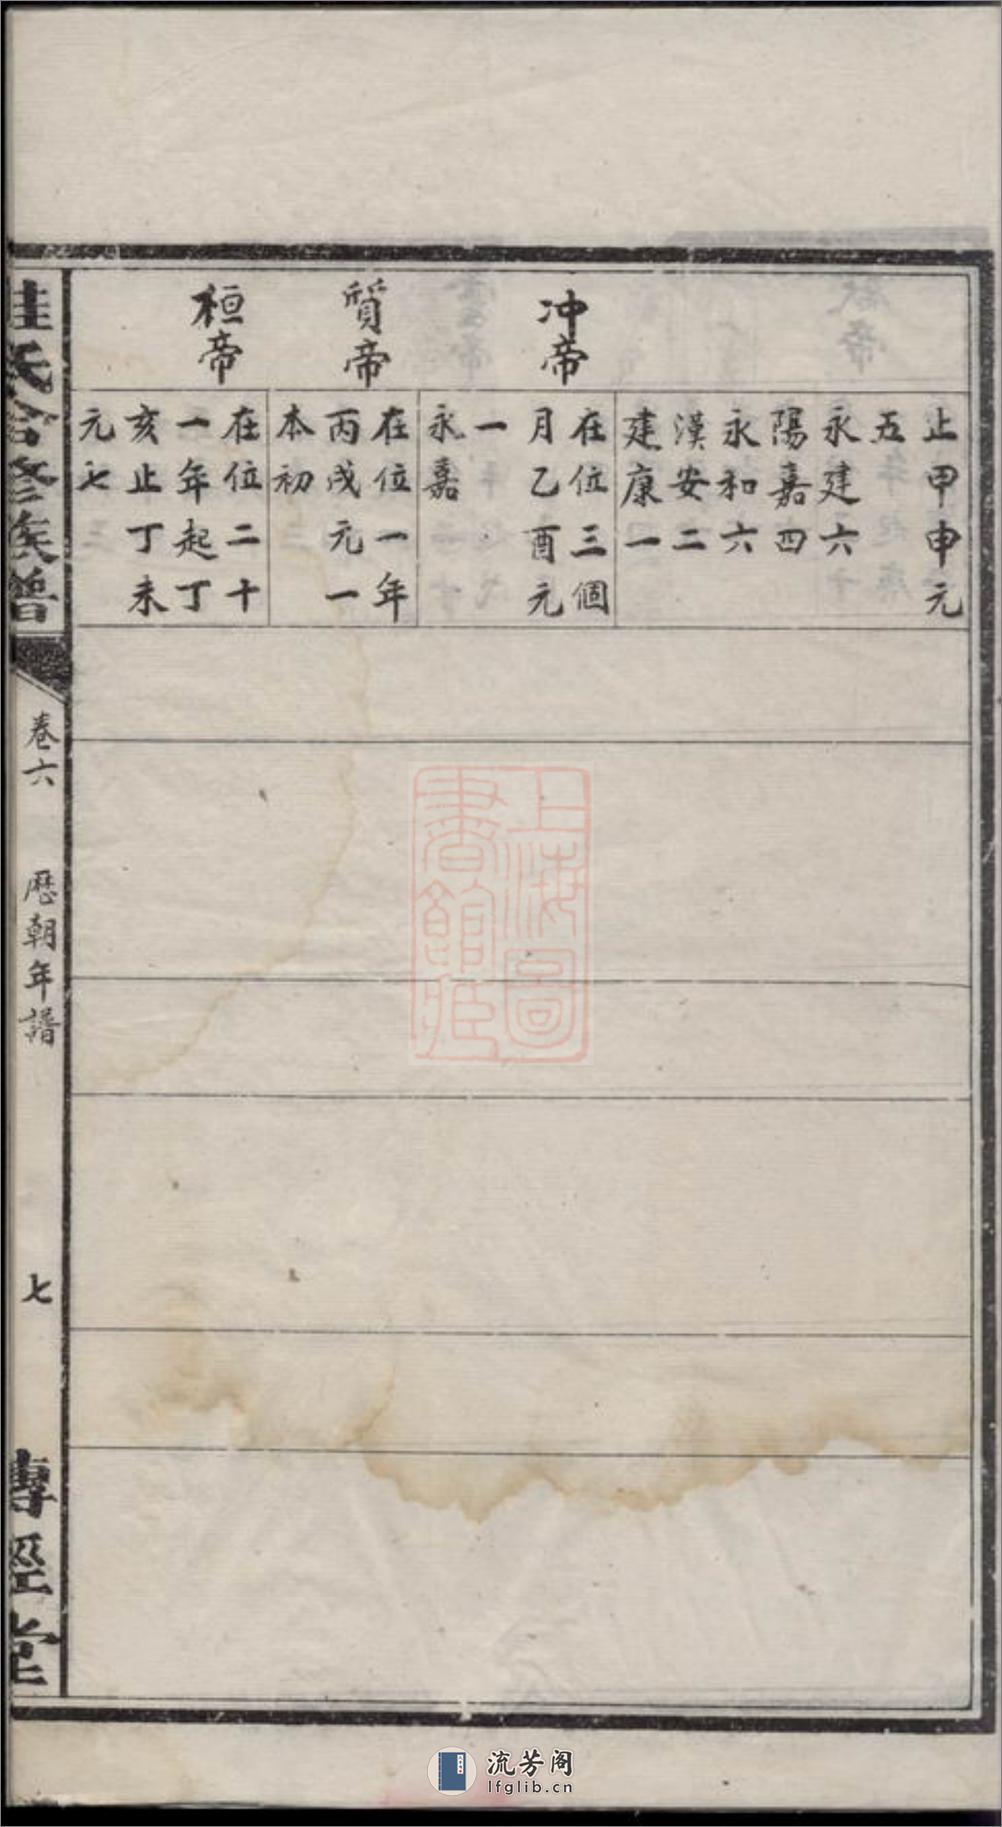 止甲申元
五
永建六
陽嘉四
永和六
漢安二
建康一
冲帝
在位三個
月乙酉元
一
永嘉
質帝
在位一年
丙戌元一
本初
桓帝
在位二十
一年起丁
亥止丁未
元七
桂氏合修族譜
卷六
歷朝年譜
七
專經堂
上海圖
書館藏
流芳阁
lfglib.cn